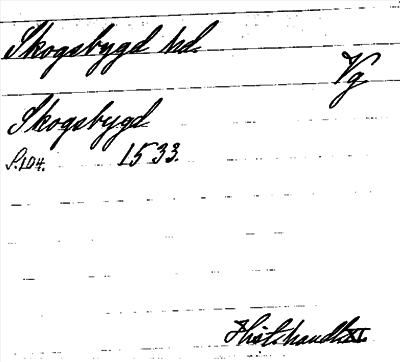 Skogsbygd hd.
Vg
Skogsbygd
S.104. 1533.
Hist. handl. XI